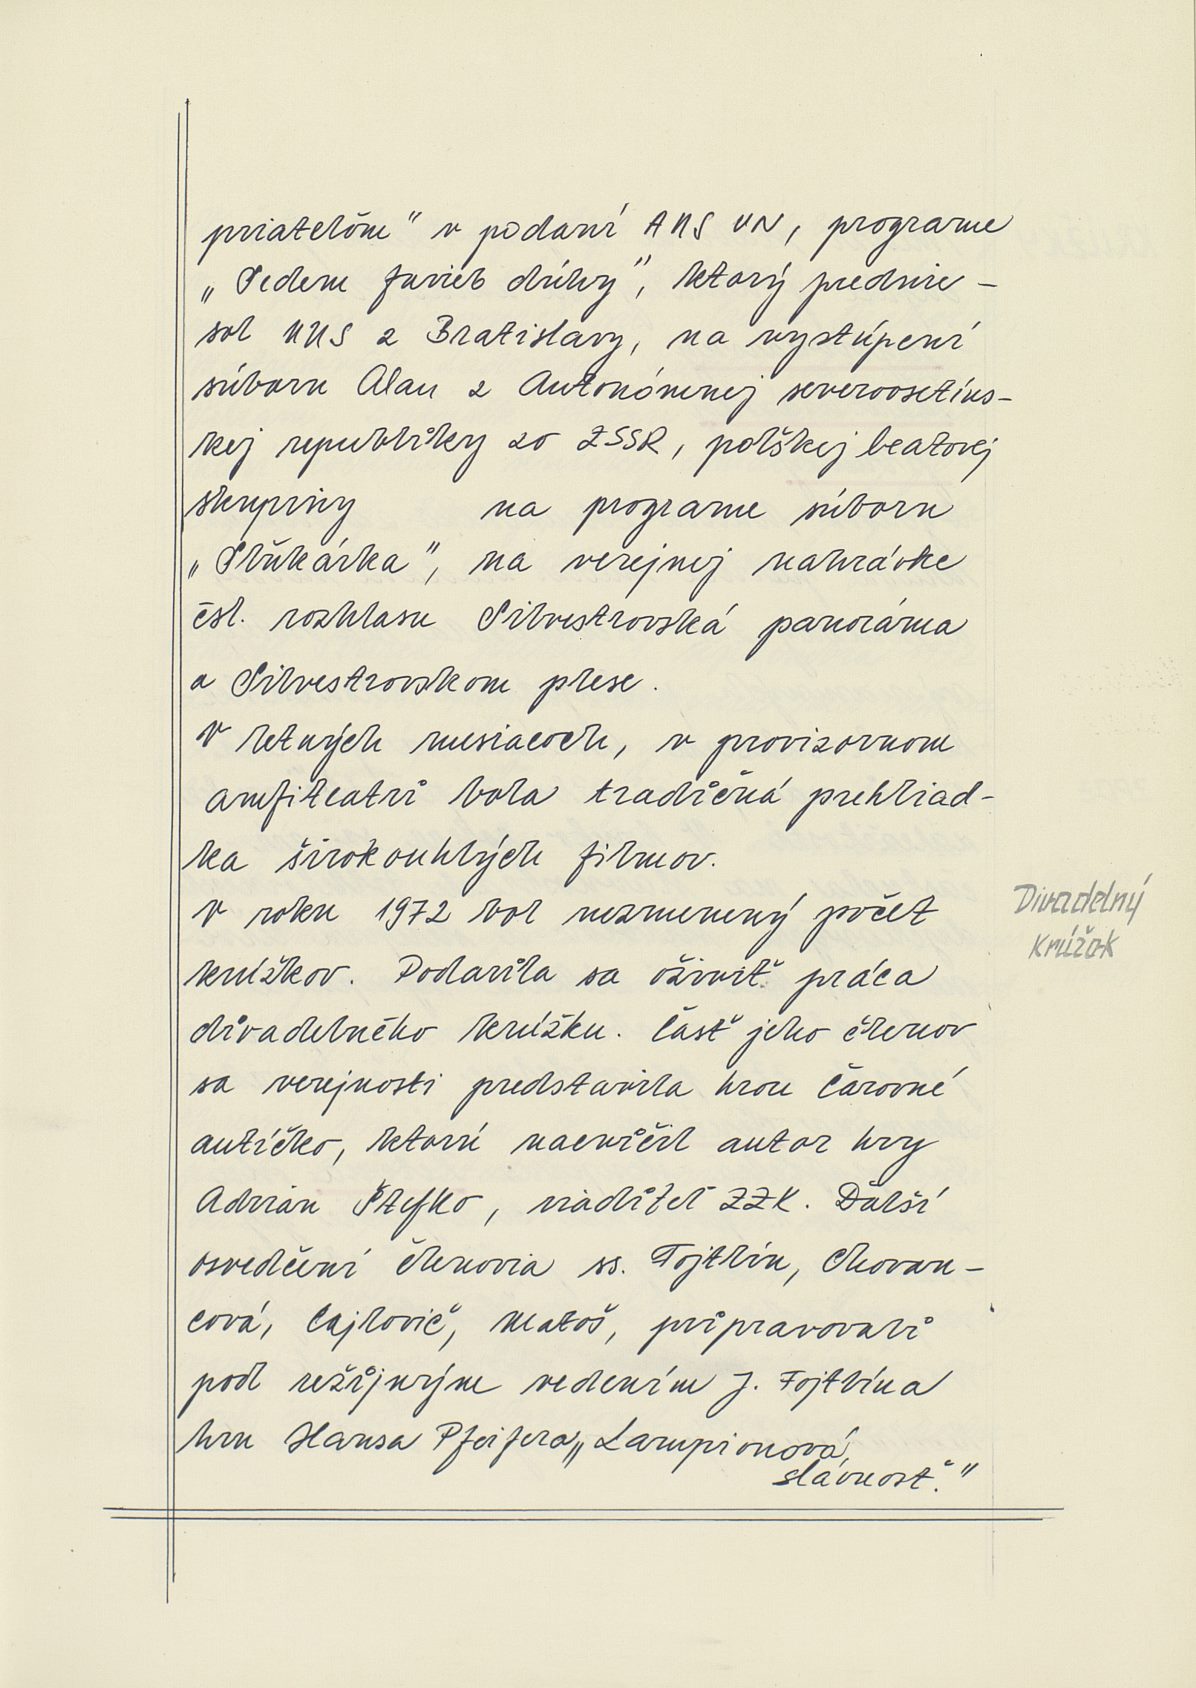 priateľom" v podaní AUS VN, programe
„Sedem farieb dúhy", ktorý prednie-
sol UUS z Bratislavy, na vystúpení
súboru Alan z Autonómnej severoosetíns-
kej republiky zo ZSSR, poľskej beatovej
skupiny na programe súboru
„Sľukárka", na verejnej nahrávke
čsl. rozhlasu Silvestrovská panoráma
a Silvestrovskom plese.
V letných mesiacoch, v provizornom
amfiteatri bola tradičná prehliad-
ka širokouhlých filmov.
V roku 1972 bol nezmenený počet
krúžkov. Podarila sa oživiť práca
divadelného krúžku. Časť jeho členov
sa verejnosti predstavila hrou Čarovné
autíčko, ktorú nacvičil autor hry
Adrián Štefko, riaditeľ ZZK. Ďalší
osvedčení členovia ss. Fojtlín, Chovan-
cová, Cajlovič, Matoš, pripravovali
pod režijným vedením J. Fojtlína
hru Hansa Pfeifera „Lampionová
slávnosť."
Divadelný
krúžok